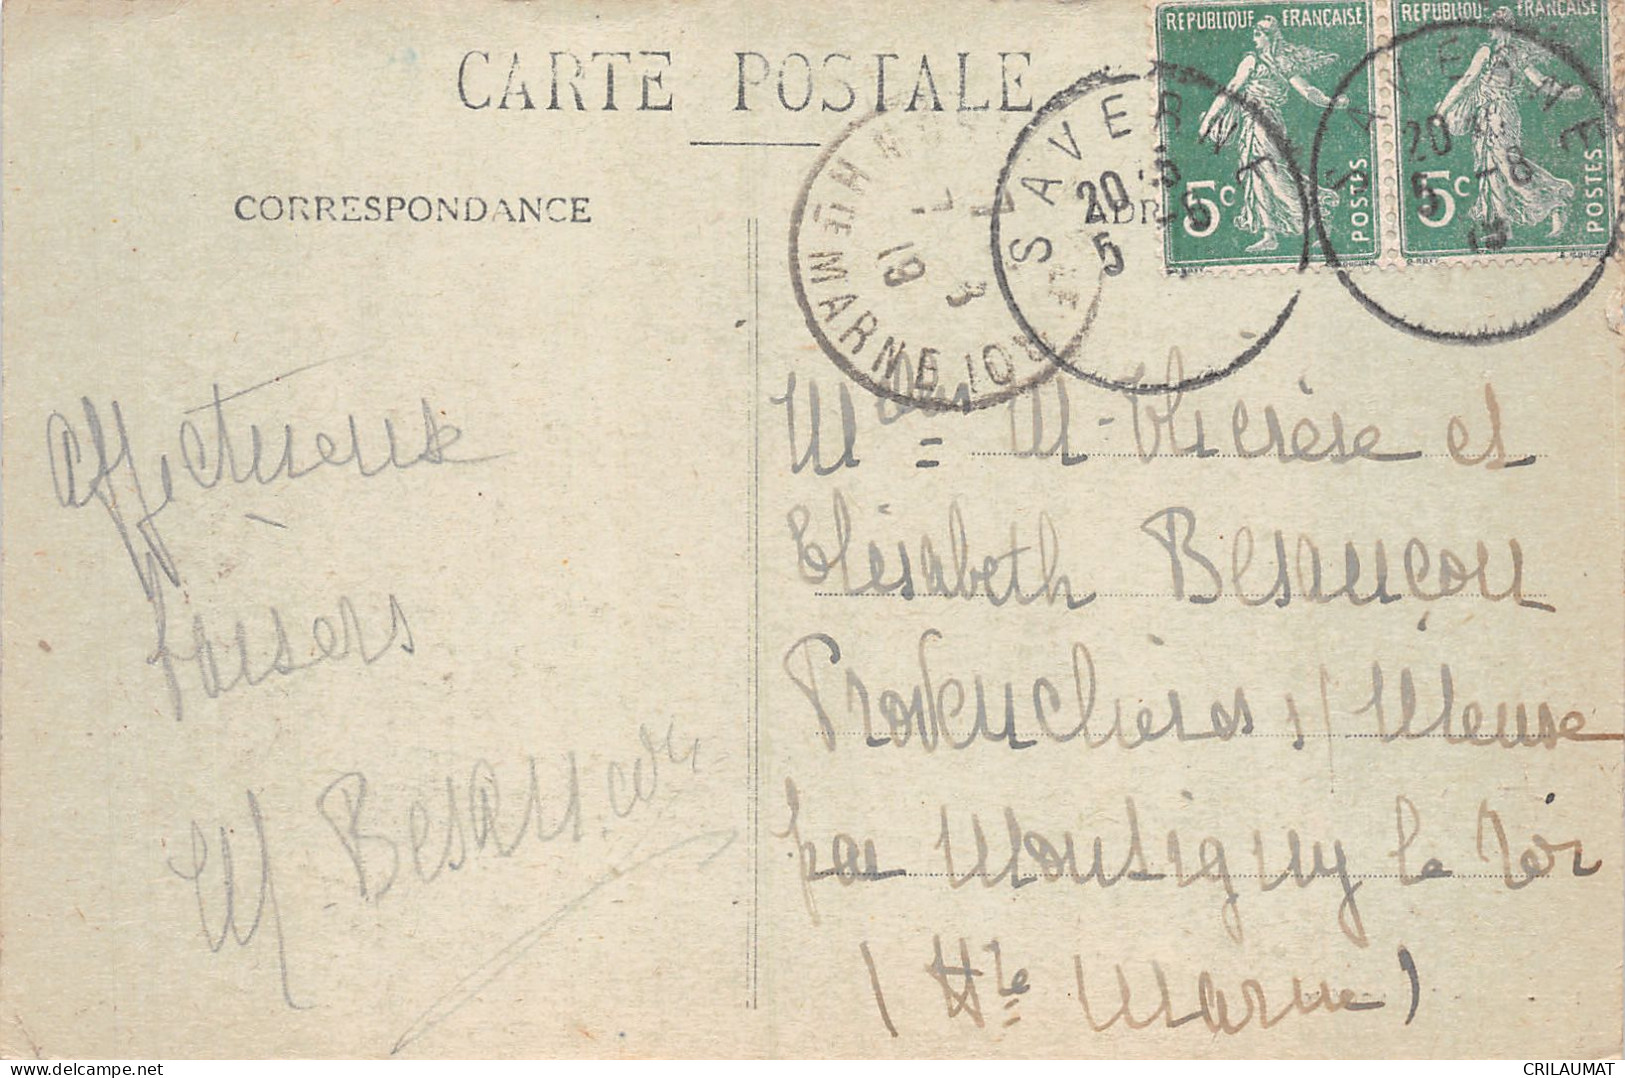 CARTE POSTALE
CORRESPONDANCE
REPUBLIQUE FRANÇAISE
5c
POSTES
REPUBLIQUE FRANÇAISE
5c
POSTES
SAVERNE
20
5 -8
SAVERNE
20
5 -8
19
HTE MARNE
7 - 8
19
Affectueux
baisers
M. Besancon
Melles M-Thérèse et
Elisabeth Besançon
Provenchères s/ Meuse
par Montigny le Roi
(Hte Marne)
delcampe.net
CRILAUMAT